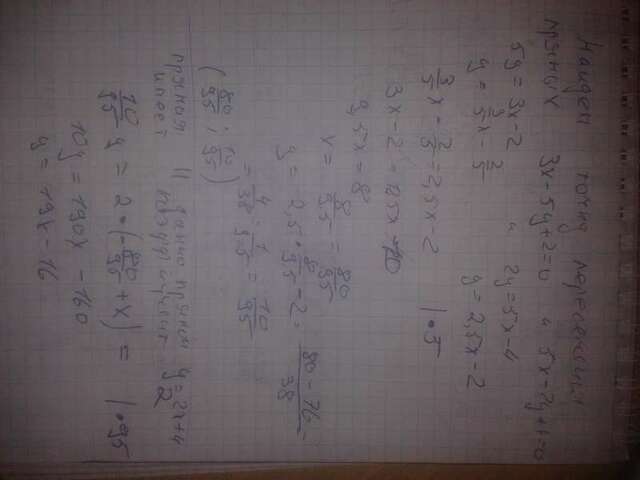 Найдем точку пересечения
прямых 3x-5y+2=0 и 5x-2y+1=0
5y = 3x-2 и 2y=5x-4
y = 3/5 x - 2/5 y = 2,5x-2
3/5 x - 2/5 = 2,5x-2 | • 5
3x-2 = 12,5x-10
9,5x = 8
x = 8/9,5 = 80/95
y = 2,5 • 8/9,5 - 2 = (80-76)/38 =
= 4/38 = 1/9,5 = 10/95
(80/95 ; 10/95)
прямая || данно прямой y=2x+4
имеет 2
10/95 y = 2•(-80/95 + x) = | • 95
10y = 190x - 160
y = 19x - 16